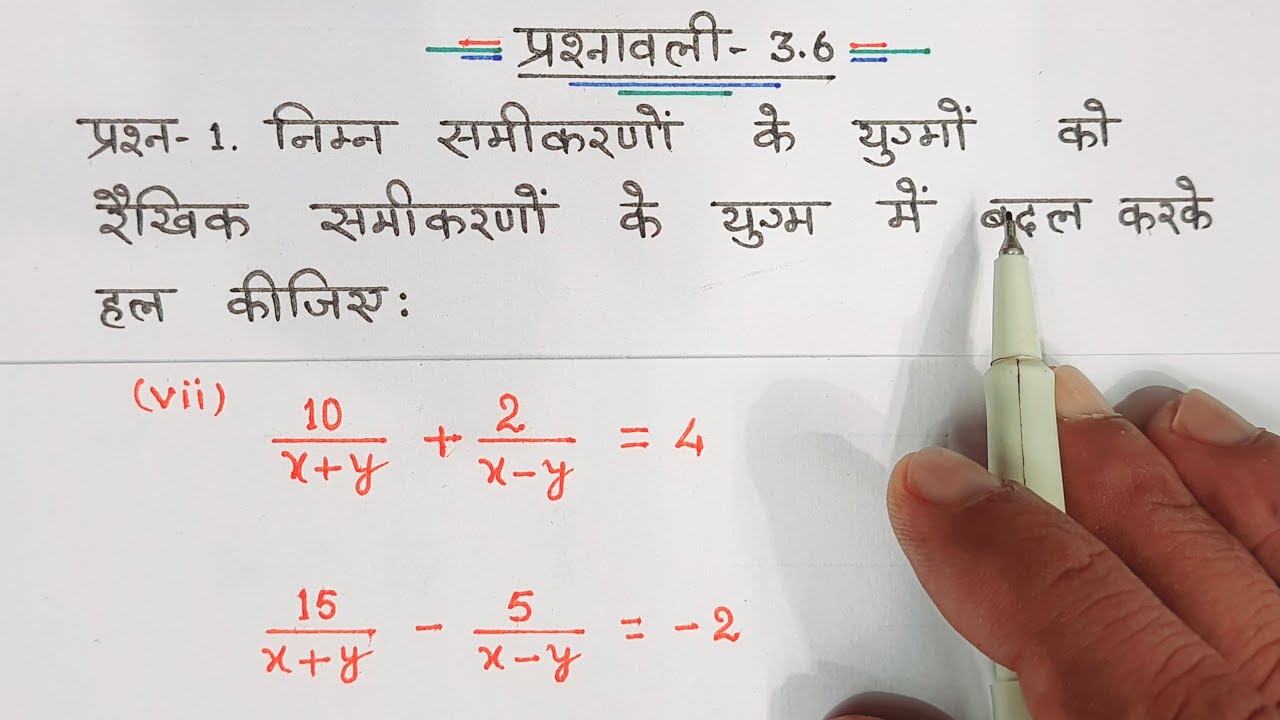 प्रश्नावली- 3.6
प्रश्न-1. निम्न समीकरणों के युग्मों को
रैखिक समीकरणों के युग्म में बदल करके
हल कीजिए:
(vii) 10/(x+y) + 2/(x-y) = 4
15/(x+y) - 5/(x-y) = -2